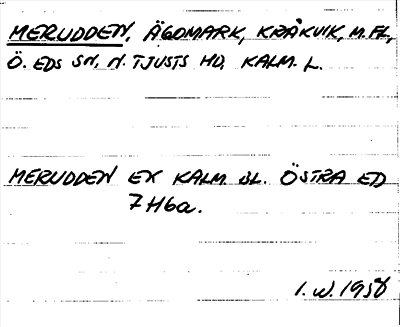 MERUDDEN, ÄGOMARK, KRÅKVIK, M.FL,
Ö. EDS SN, N. TJUSTS HD, KALM. L.
MERUDDEN EK KALM. BL. ÖSTRA ED
7H6a.
I.W. 1958